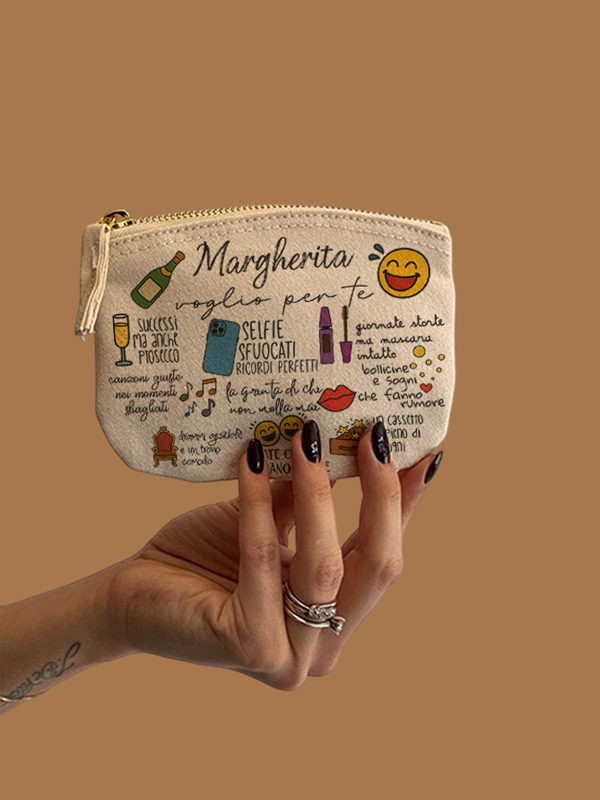 Margherita
voglio per te
SUCCESSI
MA ANCHE
PROSECCO
SELFIE
SFUOCATI
RICORDI PERFETTI
giornate storte
ma mascara
intatto
canzoni giuste
nei momenti
sbagliati
la grinta di chi
non molla mai
bollicine
e sogni
che fanno
rumore
drammi gestibili
e un trono
comodo
un cassetto
pieno di